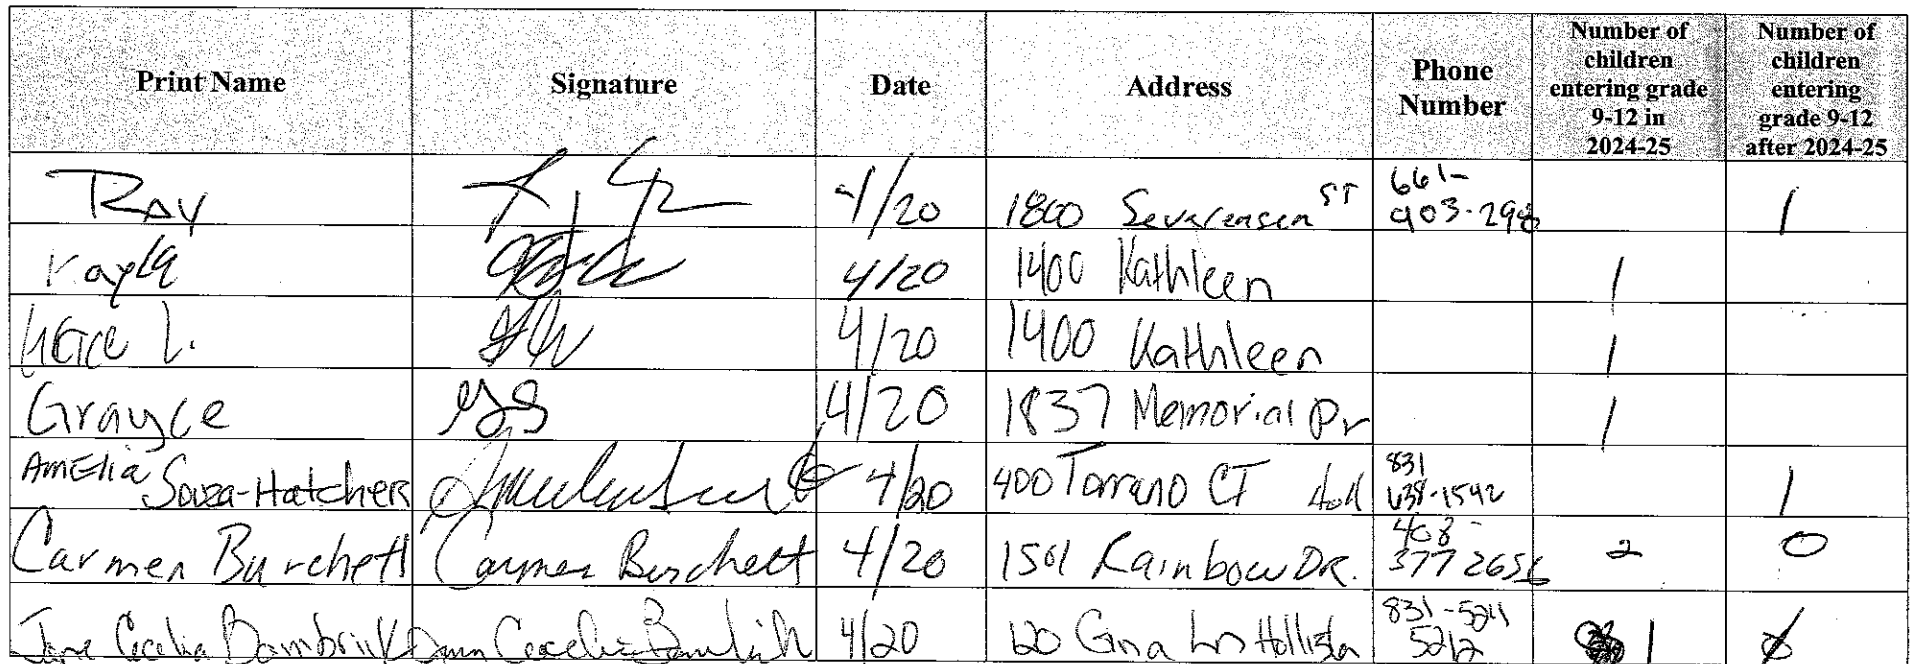 Print Name Signature Date Address Phone Number Number of children entering grade 9-12 in 2024-25 Number of children entering grade 9-12 after 2024-25
Ray 4/20 1800 ST 661-903-298 1
Kayla 4/20 1400 Kathleen 1
L. 4/20 1400 Kathleen 1
Grayce GS 4/20 1837 Memorial Dr 1
AmElia Souza-Hatcher 4/20 400 CT Holl 831 638-1542 1
Carmen Burchett Carmen Burchett 4/20 1501 Rainbow DR. 408-377 2656 2 0
Cecelia 4/20 Gina Ln Hollister 831- 5212 1